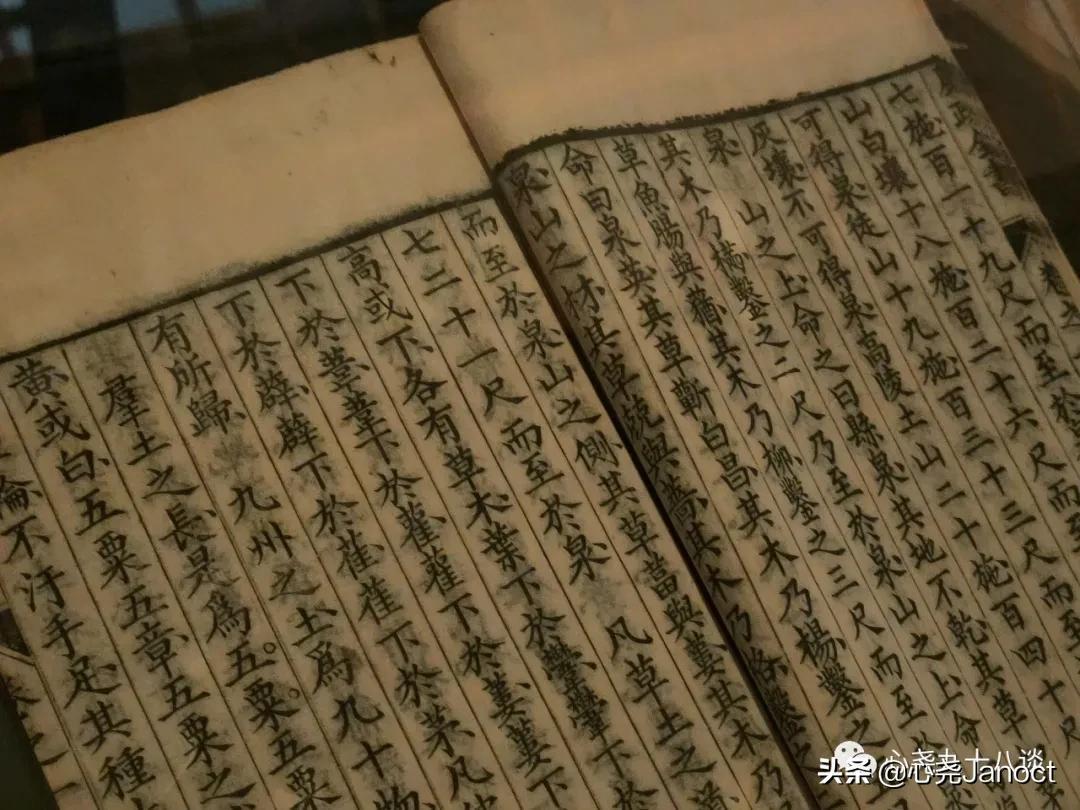 農政全書 卷之
七施百一十九尺而至於
山白壤十八施百二十六尺而至
可得泉徙山十九施百三十三尺而至
灰壤不可得泉高陵土山二十施百四十尺
泉 山之上命之曰縣泉其地不乾其草
其木乃樠鑿之二尺乃至於泉山之上命
草魚腸與蕕其木乃柳鑿之三尺而至於
命曰泉英其草蘄白昌其木乃楊鑿之
泉山之材其草兢與薔其木乃格鑿之
而至於泉山之側其草葍與蔞其木乃
七二十一尺而至於泉 凡草土之道
高或下各有草木葉下於鬱鬱下於
下於葦葦下於雚雚下於蔞蔞下
下於薜薜下於萑萑下於茅凡彼
有所歸 九州之土爲九十物
羣土之長是爲五。粟。五粟
黃或白五粟五章五粟之
淪不汙手足其種
心尧九十八谈
头条@心尧Janoct